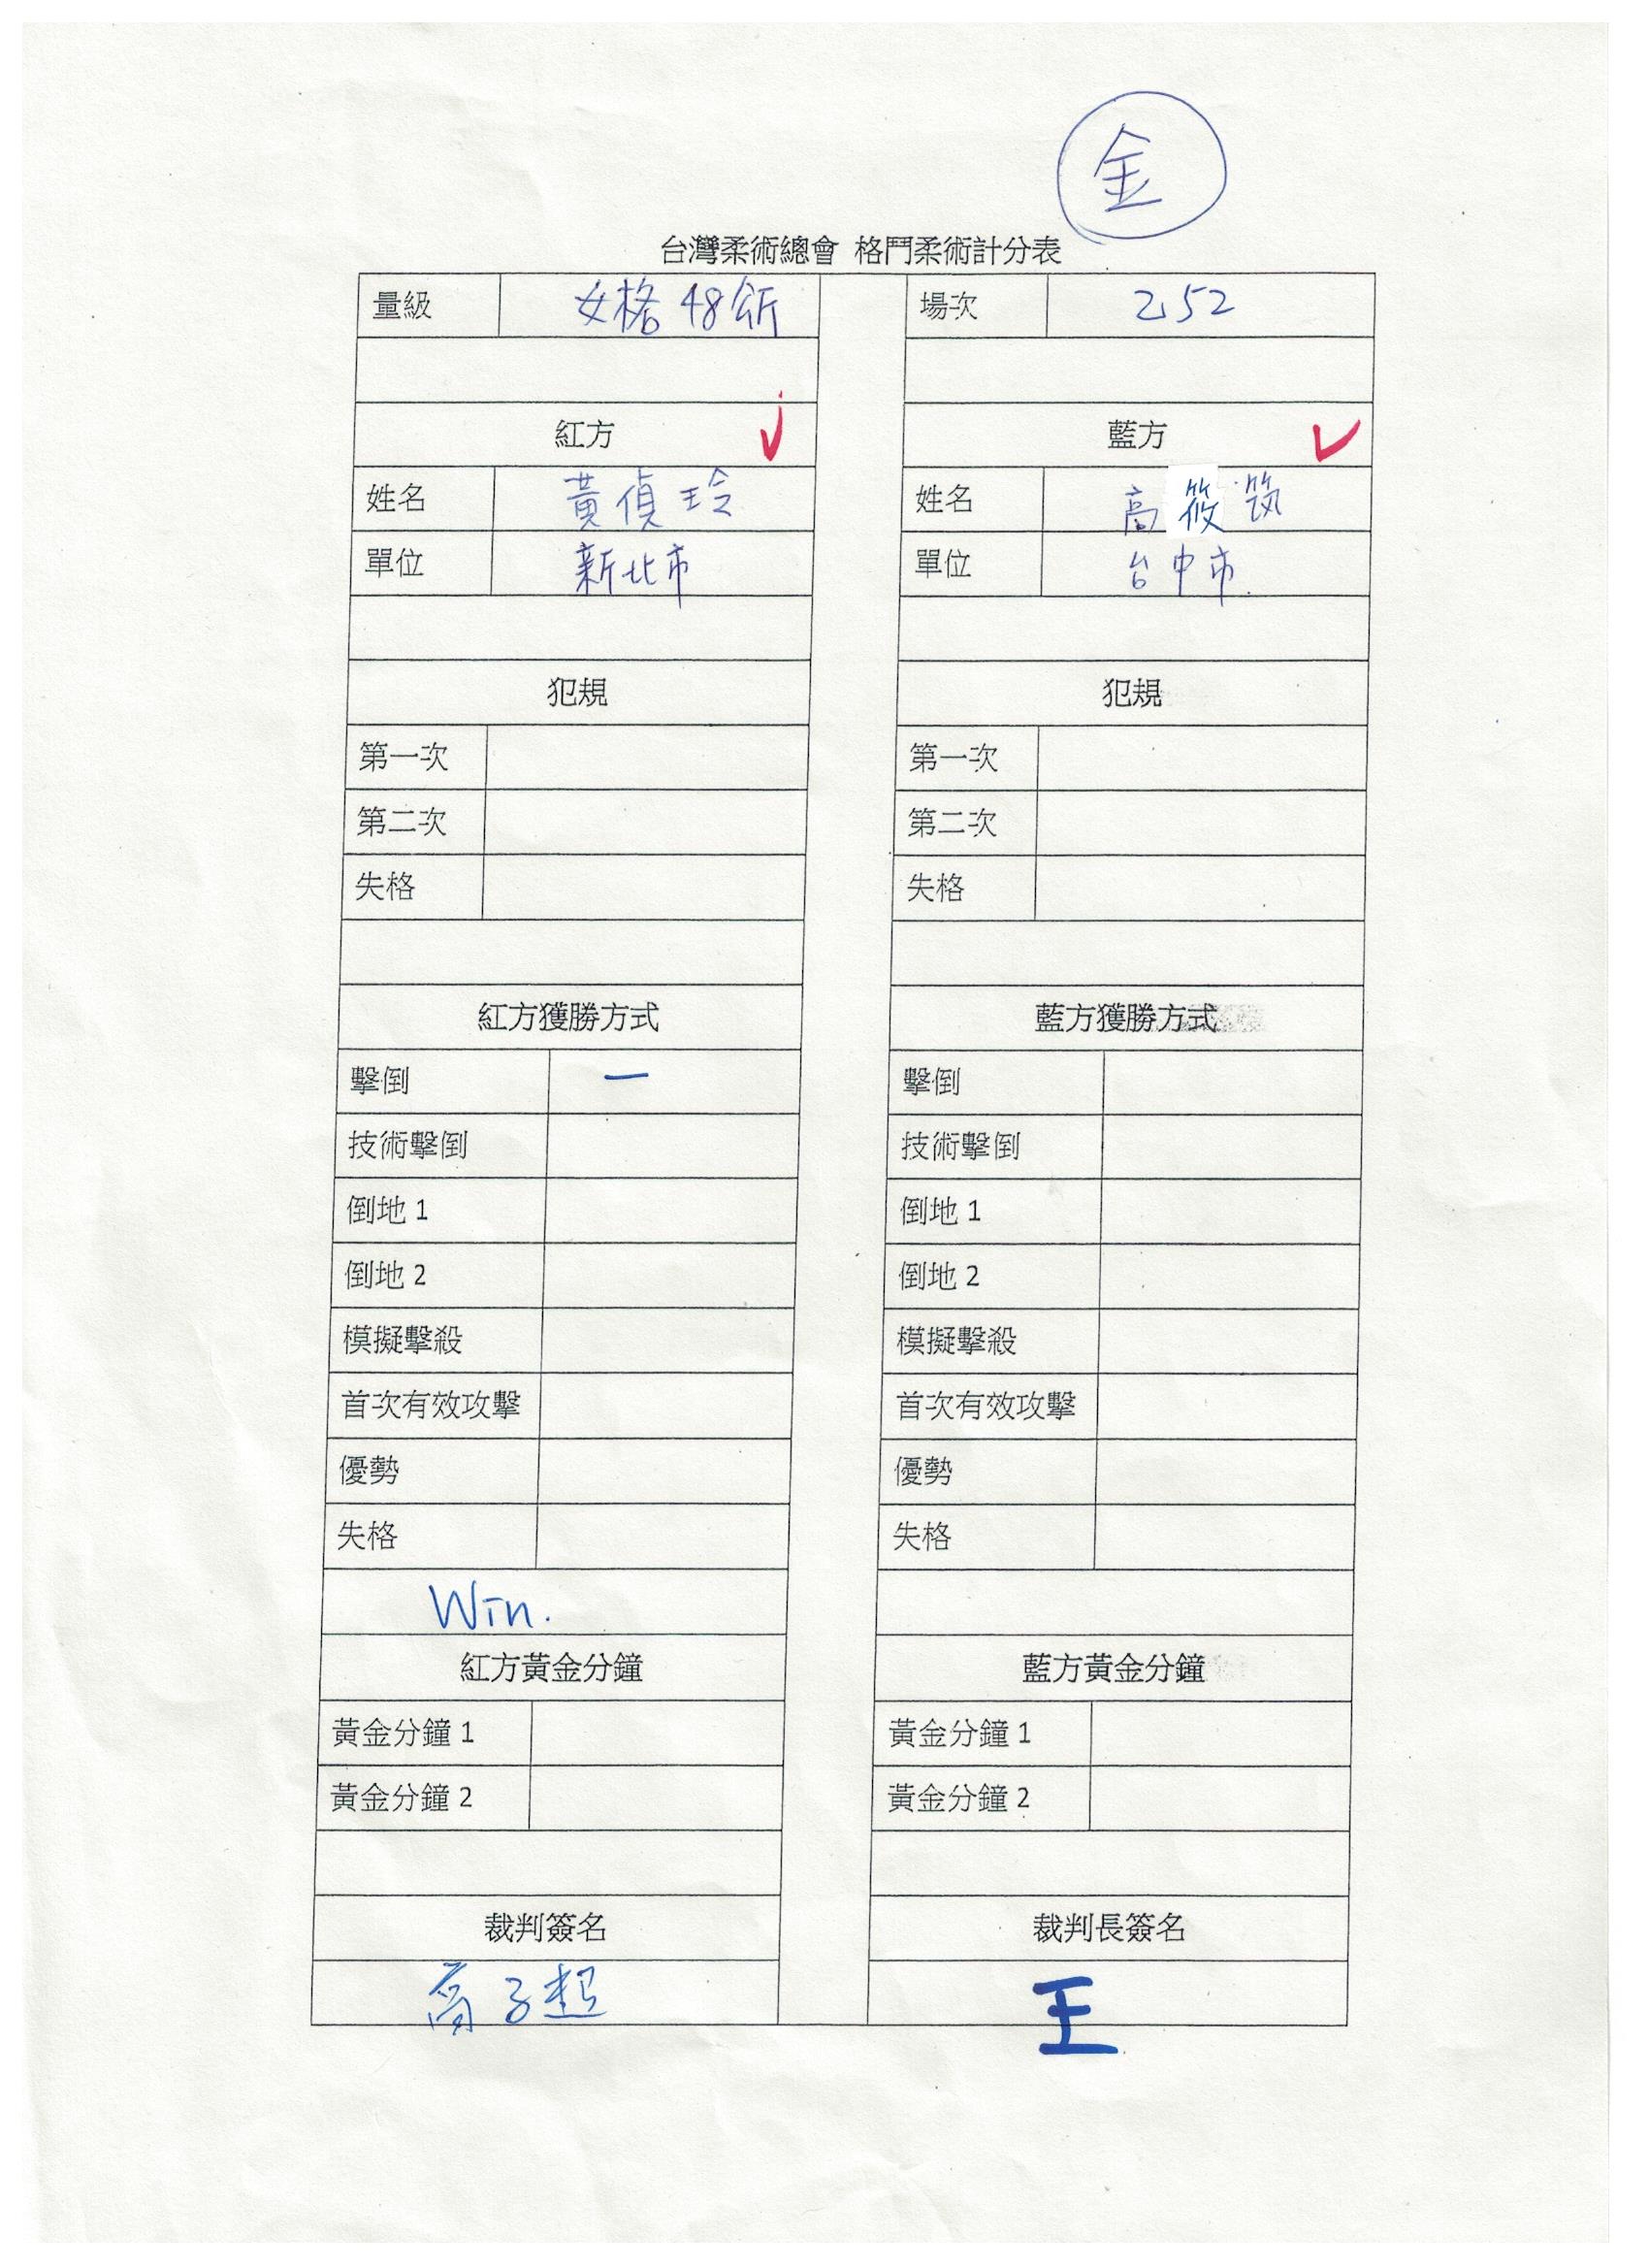 金
台灣柔術總會 格鬥柔術計分表
量級 女格 48公斤 場次 252
紅方 藍方
姓名 黃偵玲 姓名 高筱筑
單位 新北市 單位 台中市
犯規 犯規
第一次 第一次
第二次 第二次
失格 失格
紅方獲勝方式 藍方獲勝方式
擊倒 一 擊倒
技術擊倒 技術擊倒
倒地 1 倒地 1
倒地 2 倒地 2
模擬擊殺 模擬擊殺
首次有效攻擊 首次有效攻擊
優勢 優勢
失格 失格
Win.
紅方黃金分鐘 藍方黃金分鐘
黃金分鐘 1 黃金分鐘 1
黃金分鐘 2 黃金分鐘 2
裁判簽名 裁判長簽名
高子超 王